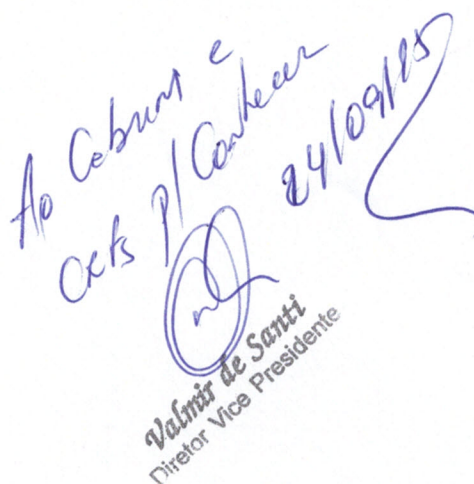 Ao Cebrom e
p/ Conhecer
24/09/25
Valmir de Santi
Diretor Vice Presidente